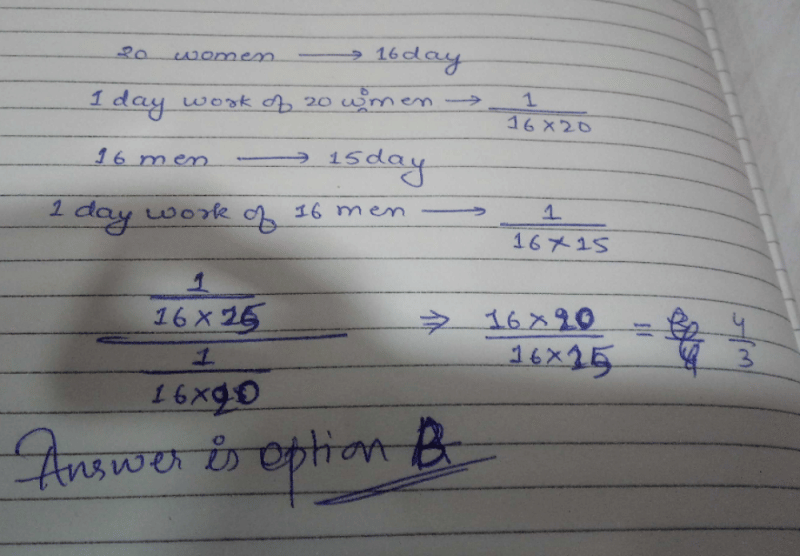 20 women → 16 day
1 day work of 20 women → 1/(16×20)
16 men → 15 day
1 day work of 16 men → 1/(16×15)
1/(16×15) / 1/(16×20) ⇒ (16×20)/(16×15) = 4/3
Answer is option B